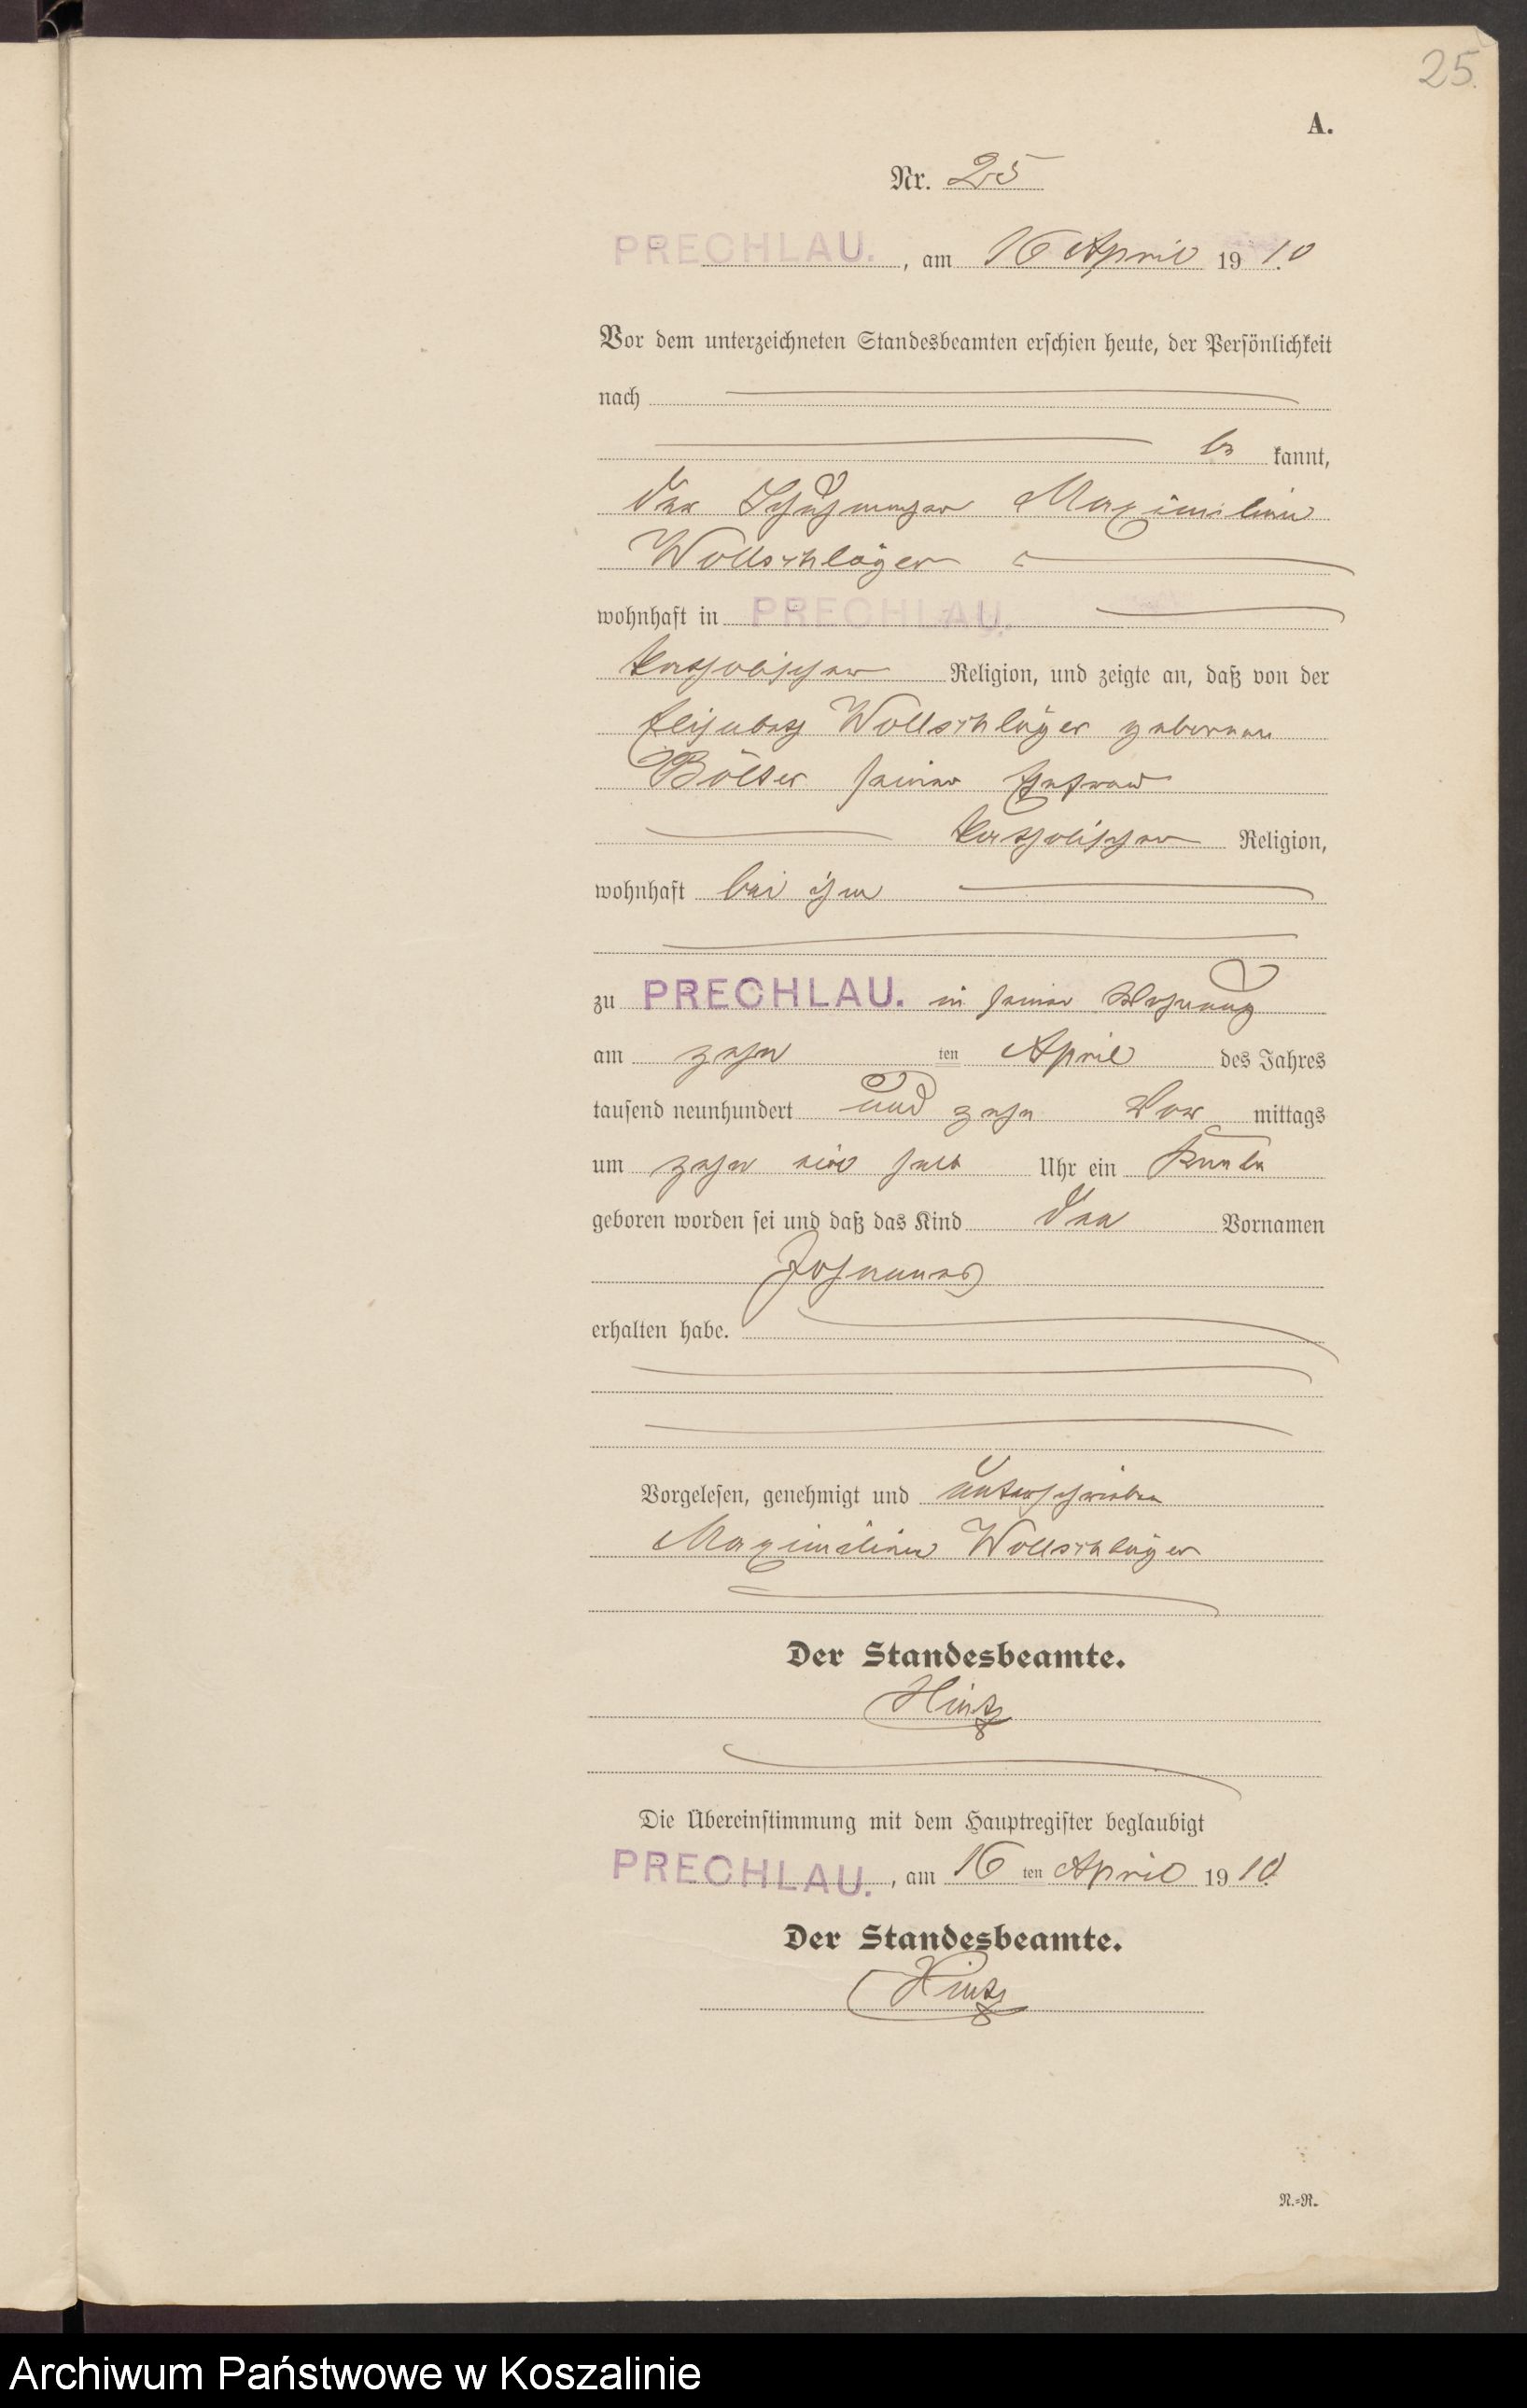 25.
A.
Nr. 25
PRECHLAU. , am 16 April 1910
Vor dem unterzeichneten Standesbeamten erschien heute, der Persönlichkeit
nach
be kannt,
der Schuhmacher Maximilian
Wollschläger
wohnhaft in PRECHLAU.
katholischer Religion, und zeigte an, daß von der
Elisabeth Wollschläger geborenen
Bölter seiner Ehefrau
katholischer Religion,
wohnhaft bei ihm
zu PRECHLAU. in seiner Wohnung
am zehn ten April des Jahres
tausend neunhundert und zehn Vor mittags
um zehn ein halb Uhr ein Knabe
geboren worden sei und daß das Kind den Vornamen
Johannes
erhalten habe.
Vorgelesen, genehmigt und unterschrieben
Maximilian Wollschläger
Der Standesbeamte.
Hintz
Die Übereinstimmung mit dem Hauptregister beglaubigt
PRECHLAU. , am 16 ten April 1910.
Der Standesbeamte.
Hintz
N.=R.
Archiwum Państwowe w Koszalinie